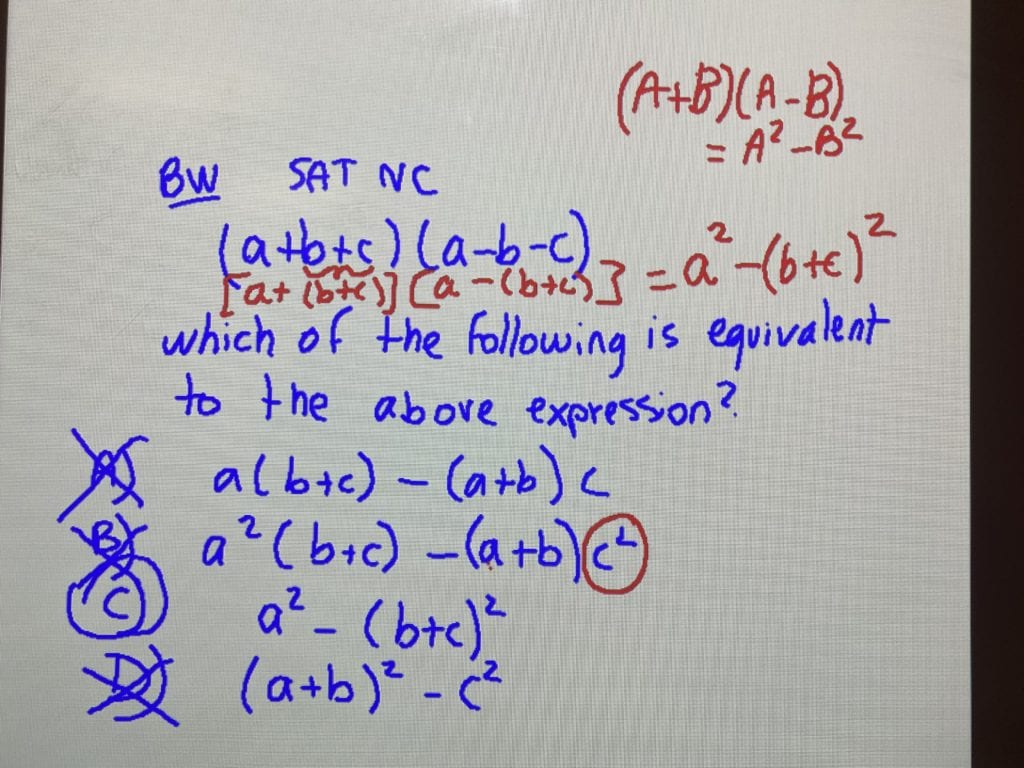 (A+B)(A-B)
= A² - B²
BW SAT NC
(a+b+c)(a-b-c)
[a+(b+c)][a-(b+c)] = a² - (b+c)²
which of the following is equivalent
to the above expression?
A) a(b+c) - (a+b)c
B) a²(b+c) - (a+b)c²
C a² - (b+c)²
D) (a+b)² - c²